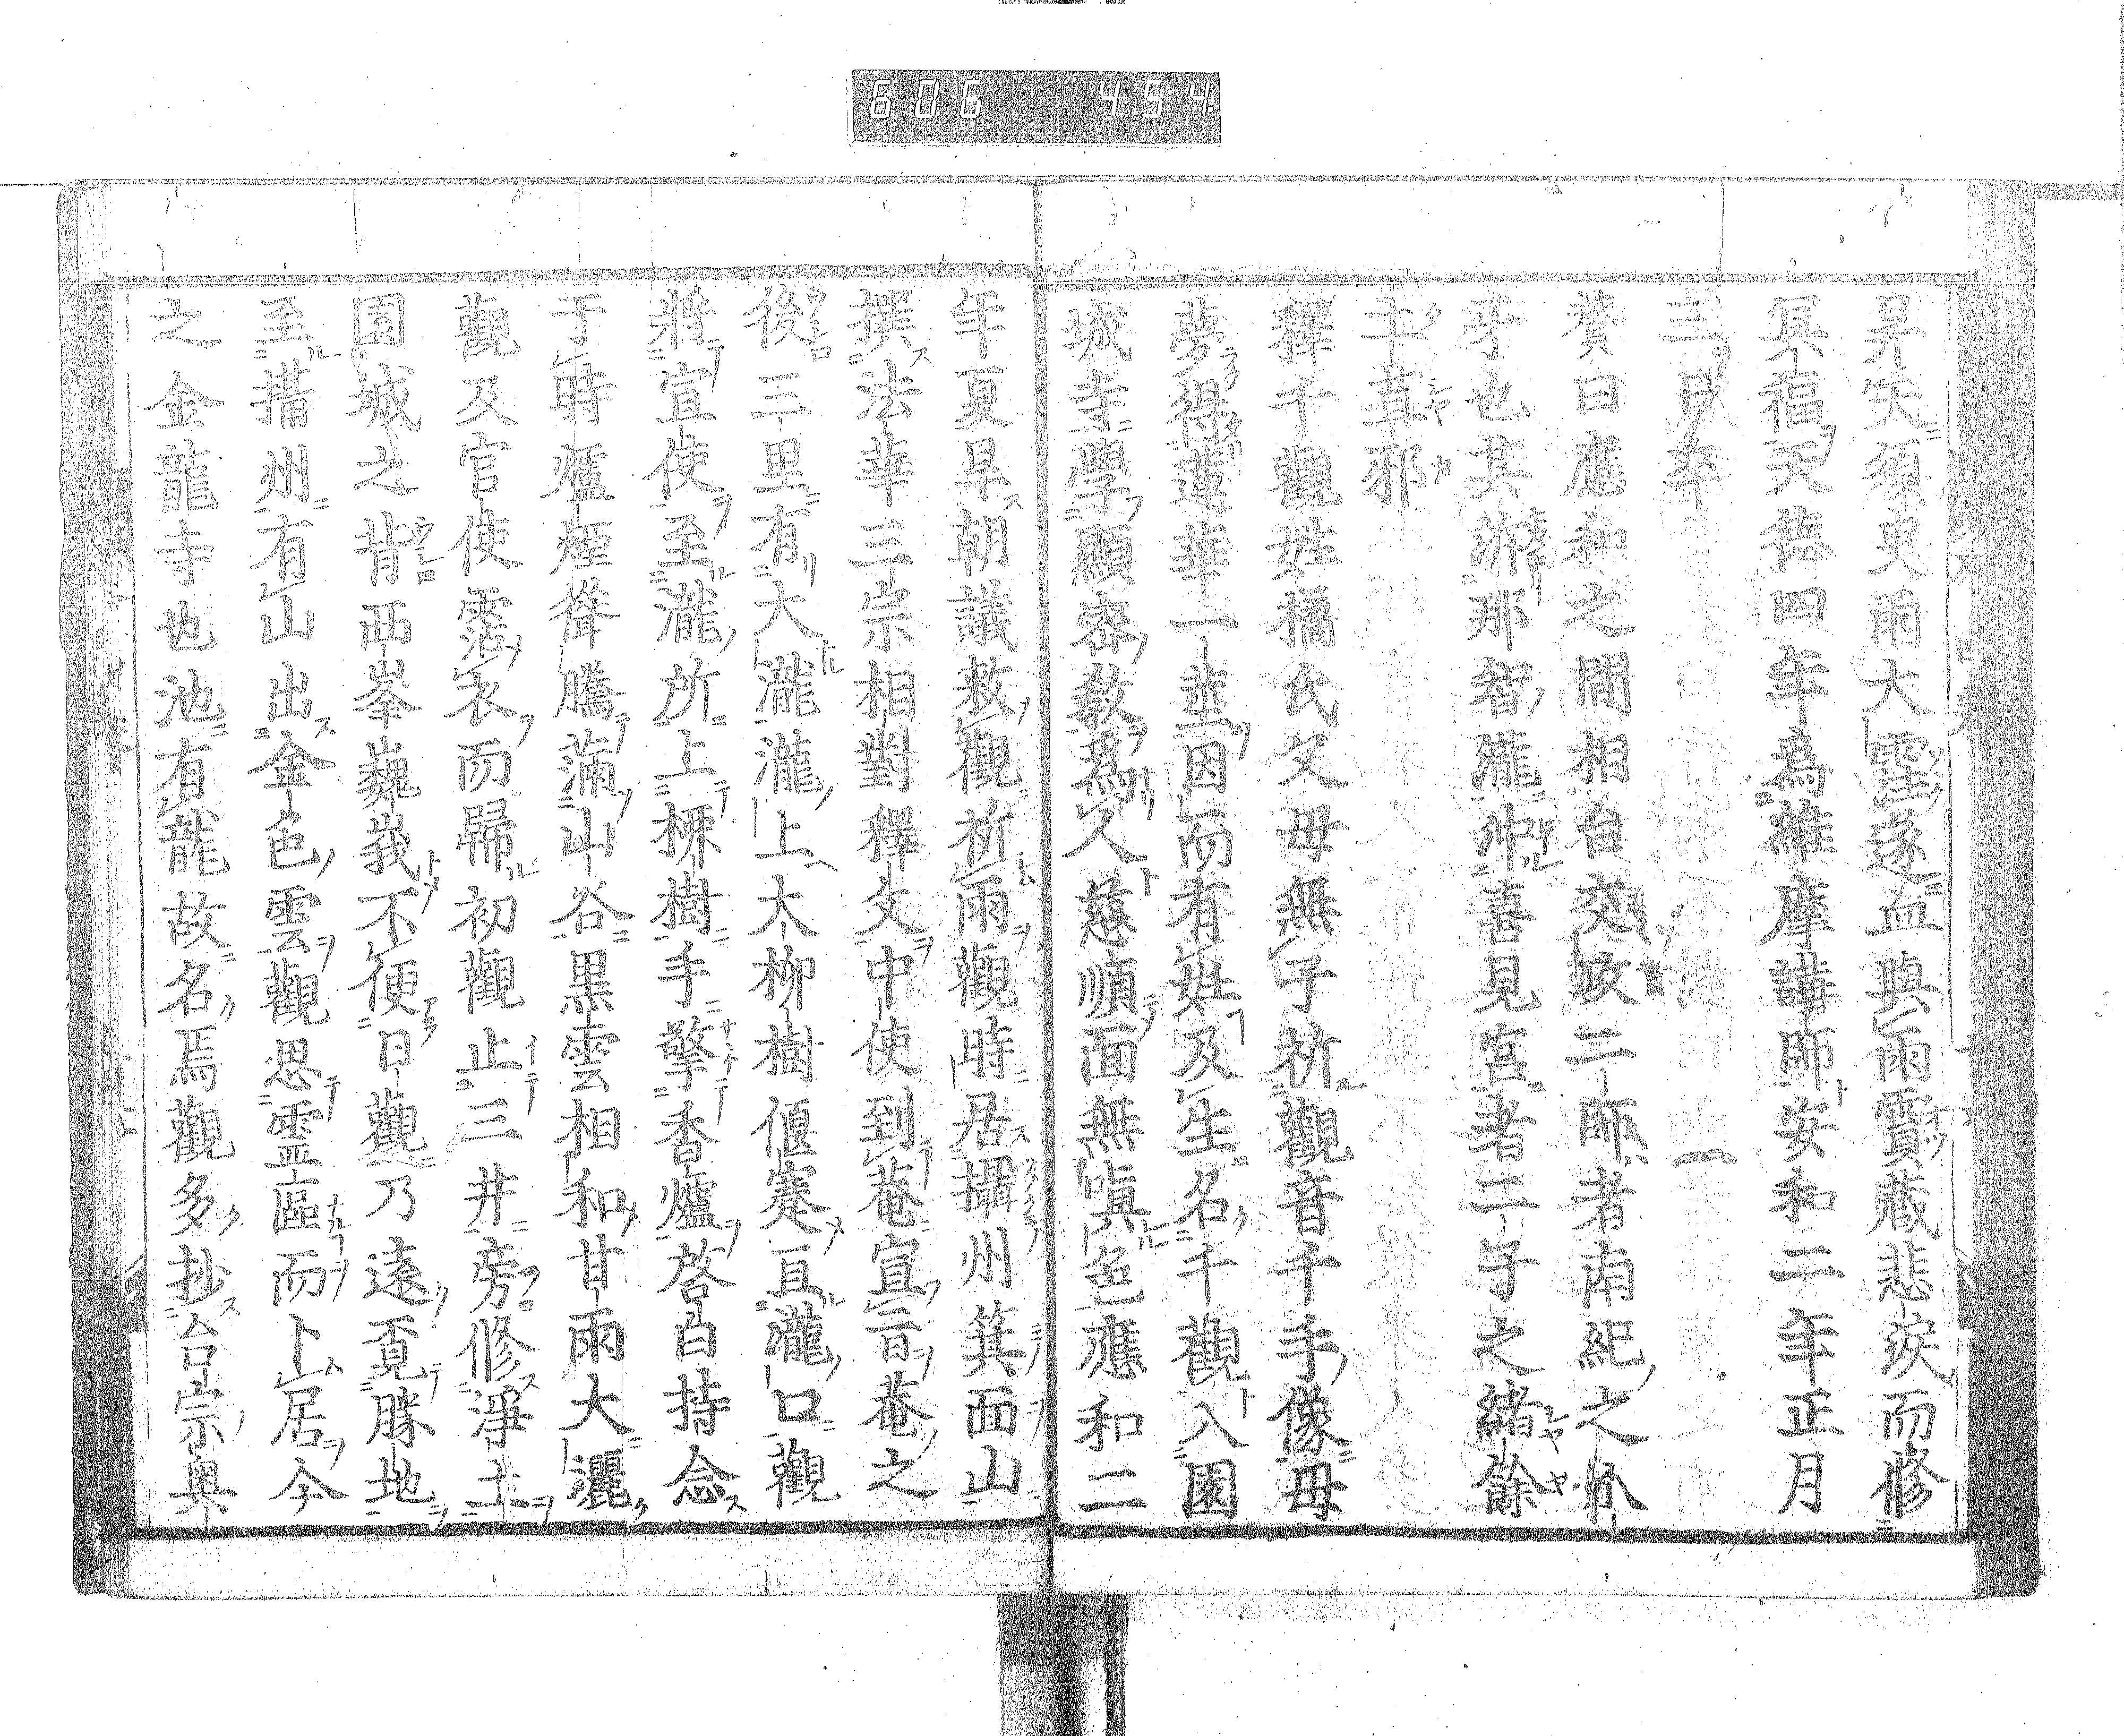 606 454
昇矣須臾雨大霔遂血與雨竇藏悲淚而修
冥福天德四年為維摩講師安和二年正月
三日卒
賛曰應和之間相台奕政二師者南紀之
牙也其泝那智瀧沖喜見宮者二子之緒餘
土苴邪
釋千觀姓橘氏父母無子祈觀音千手像母
夢得蓮華一莖因而有姙及生名千觀入園
城寺學顯密教為人慈順面無嗔色應和二
年夏旱朝議敕觀祈雨觀時居攝州箕面山
撰法華三宗相對釋文中使到菴宣旨菴之
後三里有大瀧瀧上大柳樹偃蹇亘瀧口觀
將宣使至瀧所上栁樹手擎香爐啓白持念
于時爐煙聳騰滿山谷黑雲相和甘雨大灑
觀及官使霑衣而歸初觀止三井旁修淨土
園城之背西峯巍峩不便日觀乃遠覓勝地
至攝州有山出金色雲觀思靈區而卜居今
之金龍寺也池有龍故名焉觀多抄台宗奧